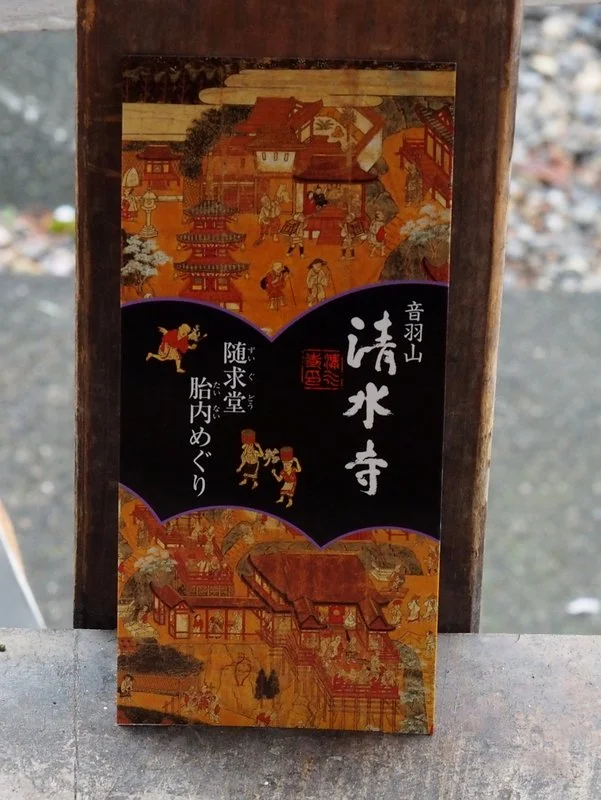 音羽山
清水寺
随求堂
ずいぐどう
胎内めぐり
たいない